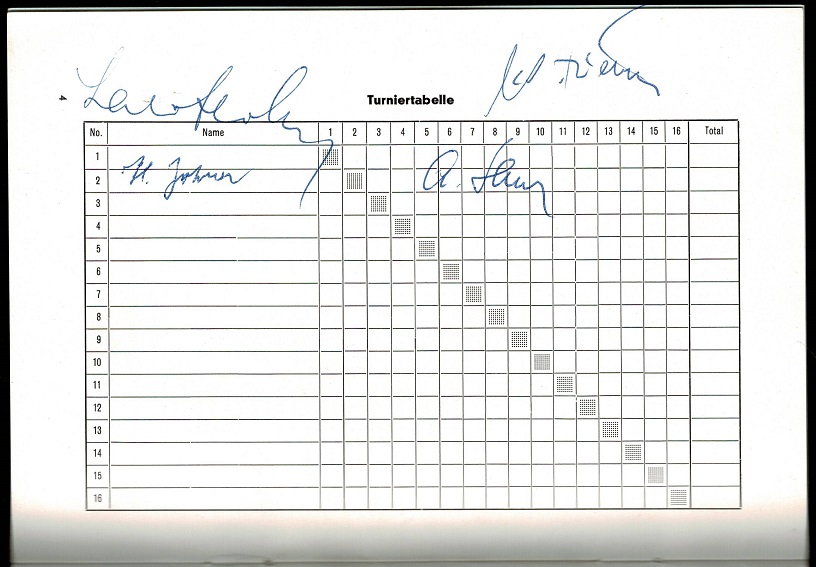 4
Turniertabelle
No. Name 1 2 3 4 5 6 7 8 9 10 11 12 13 14 15 16 Total
1
2 H. Johner
3
4
5
6
7
8
9
10
11
12
13
14
15
16